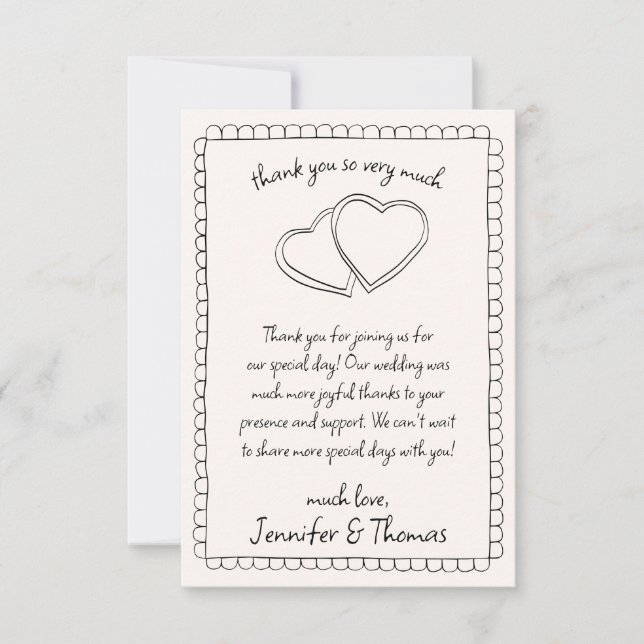 thank you so very much
Thank you for joining us for
our special day! Our wedding was
much more joyful thanks to your
presence and support. We can't wait
to share more special days with you!
much love,
Jennifer & Thomas